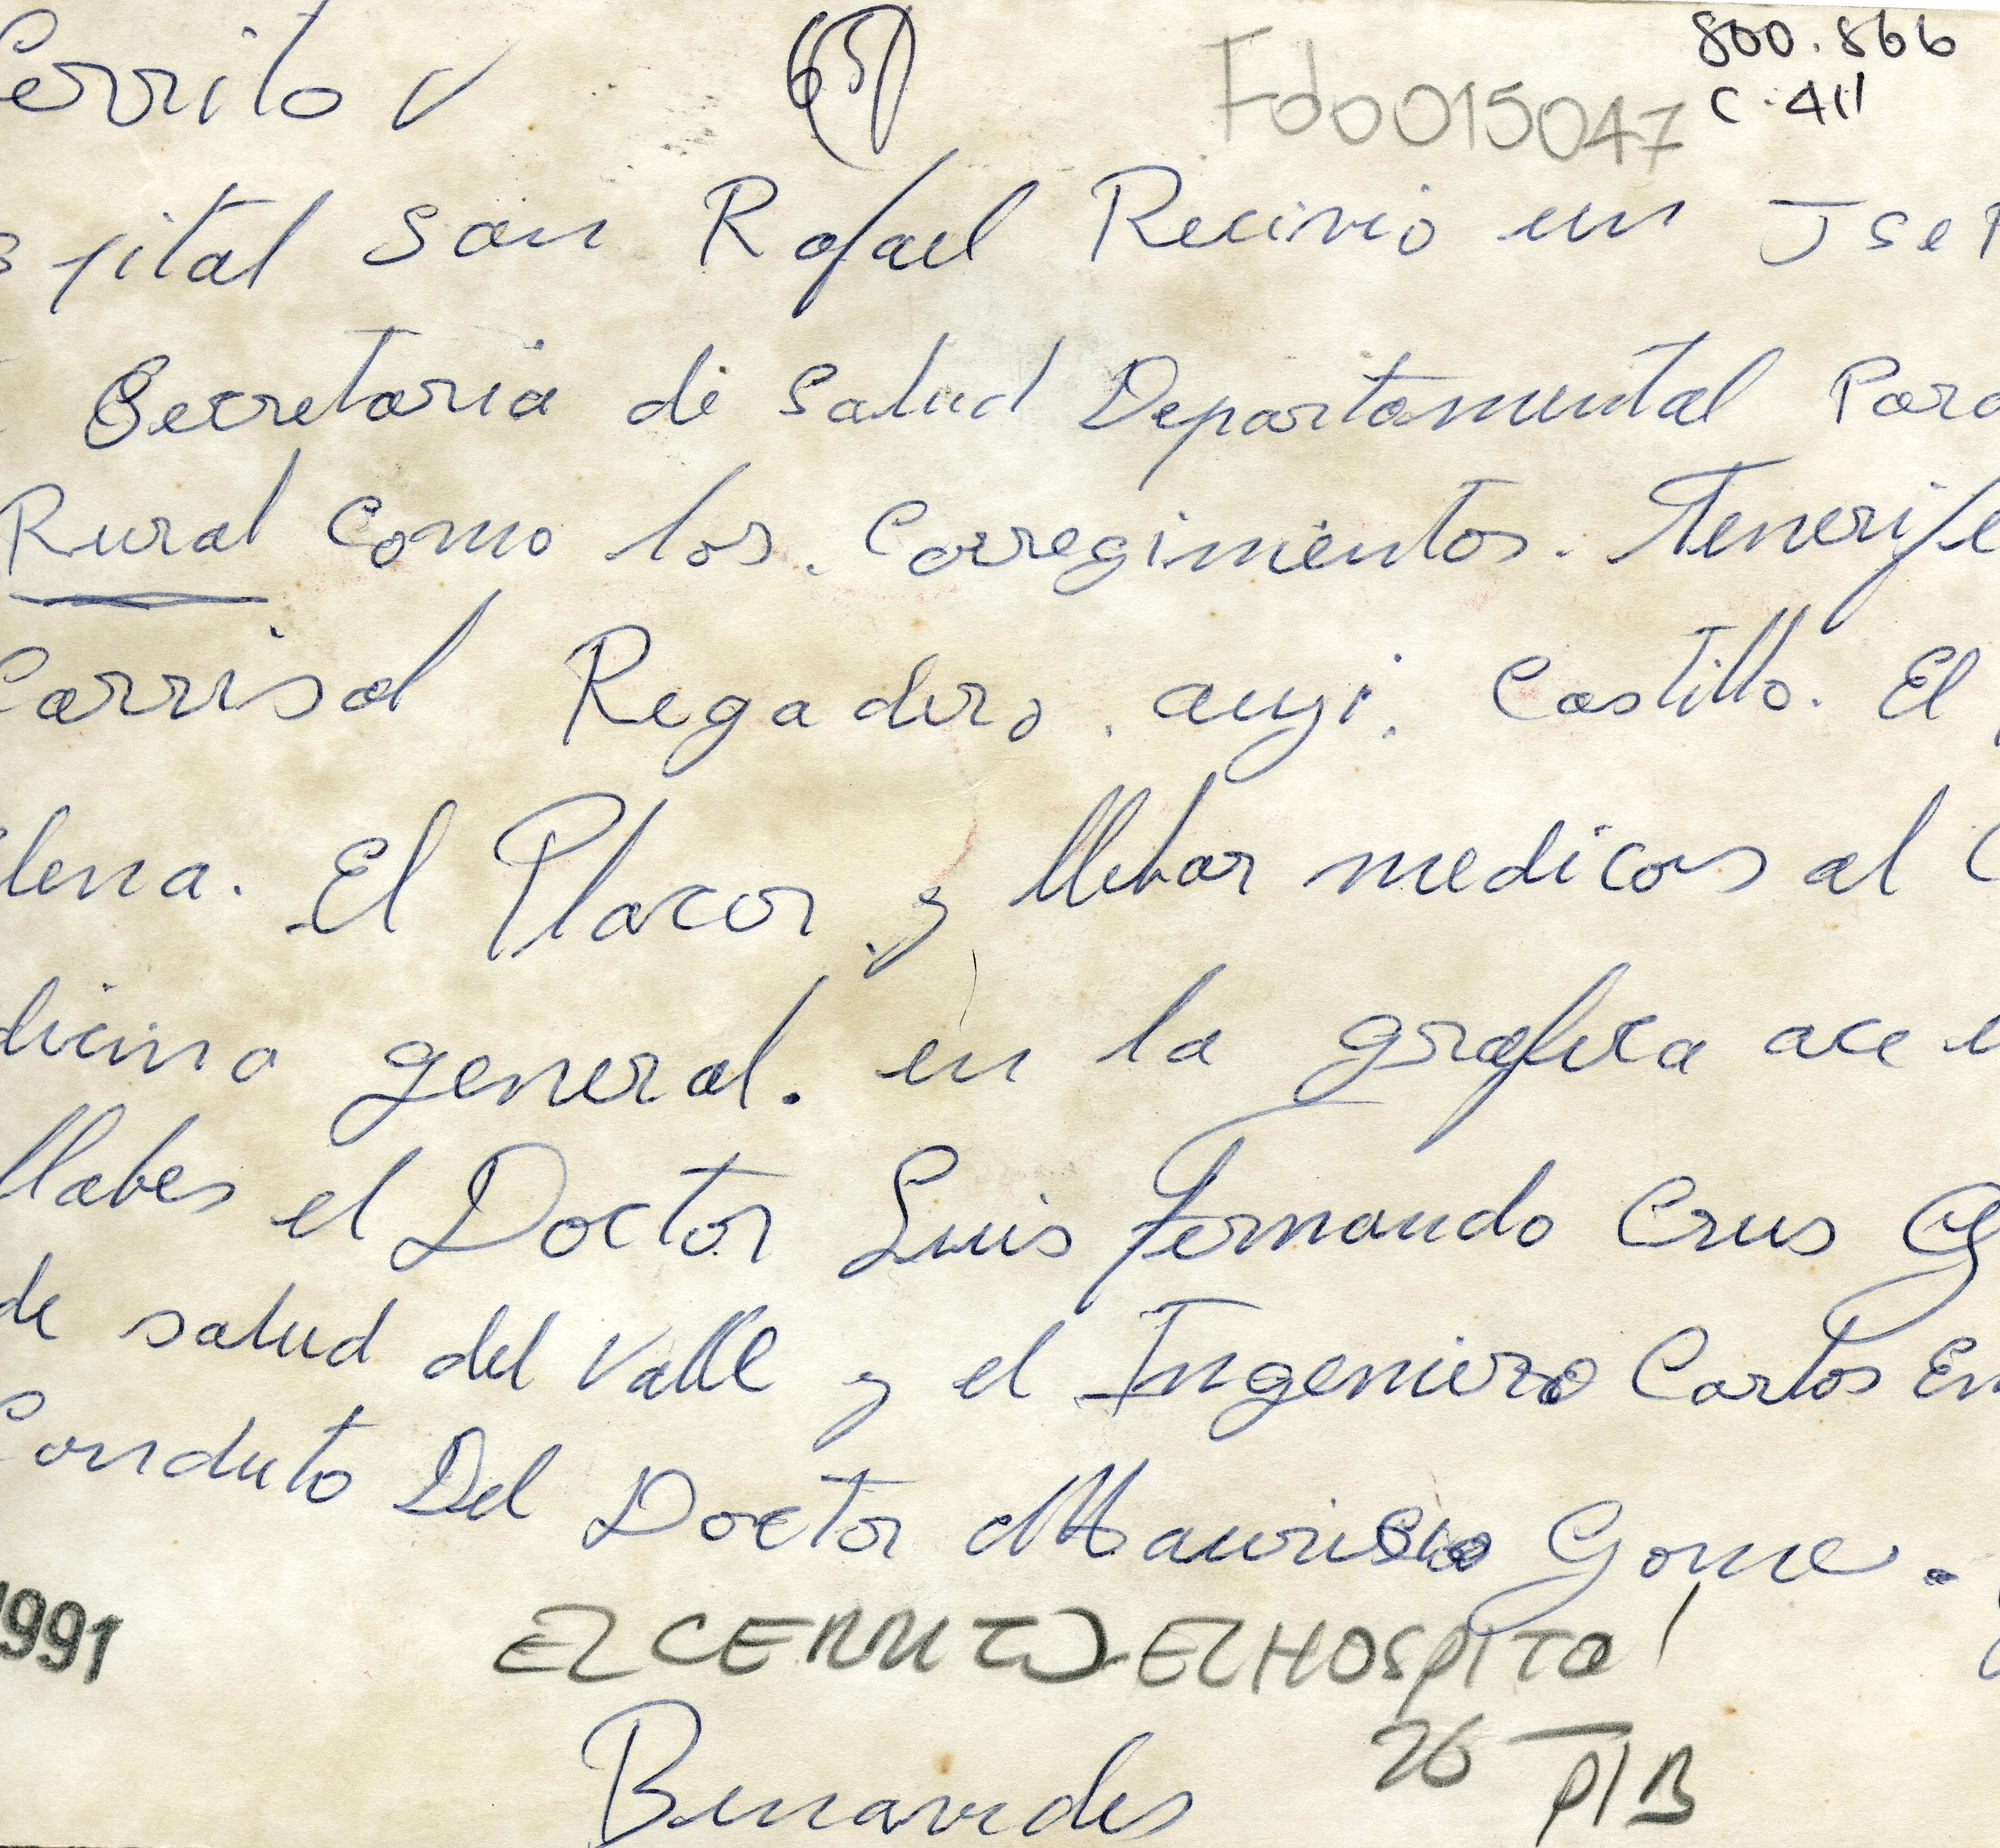 Cerrito V
Fdo 015047
800.866
C-411
spital San Rafael Recivio un Jsep
Secretaria de Salud Departamental Para
Rural Como los. Corregimientos. Tenerife
Carrisal Regadero. auji. Castillo. El
lena. El Placor. y llebar medicos al
dicina general. en la grafica ace e
llabes el Doctor Luis Fernando Crus G
de salud del Valle y el Ingeniero Carlos En
Conduto Del Doctor Maurisio Gome.
1991
EL CERRITO - EL HOSPITAL
Benavides
26
P/B